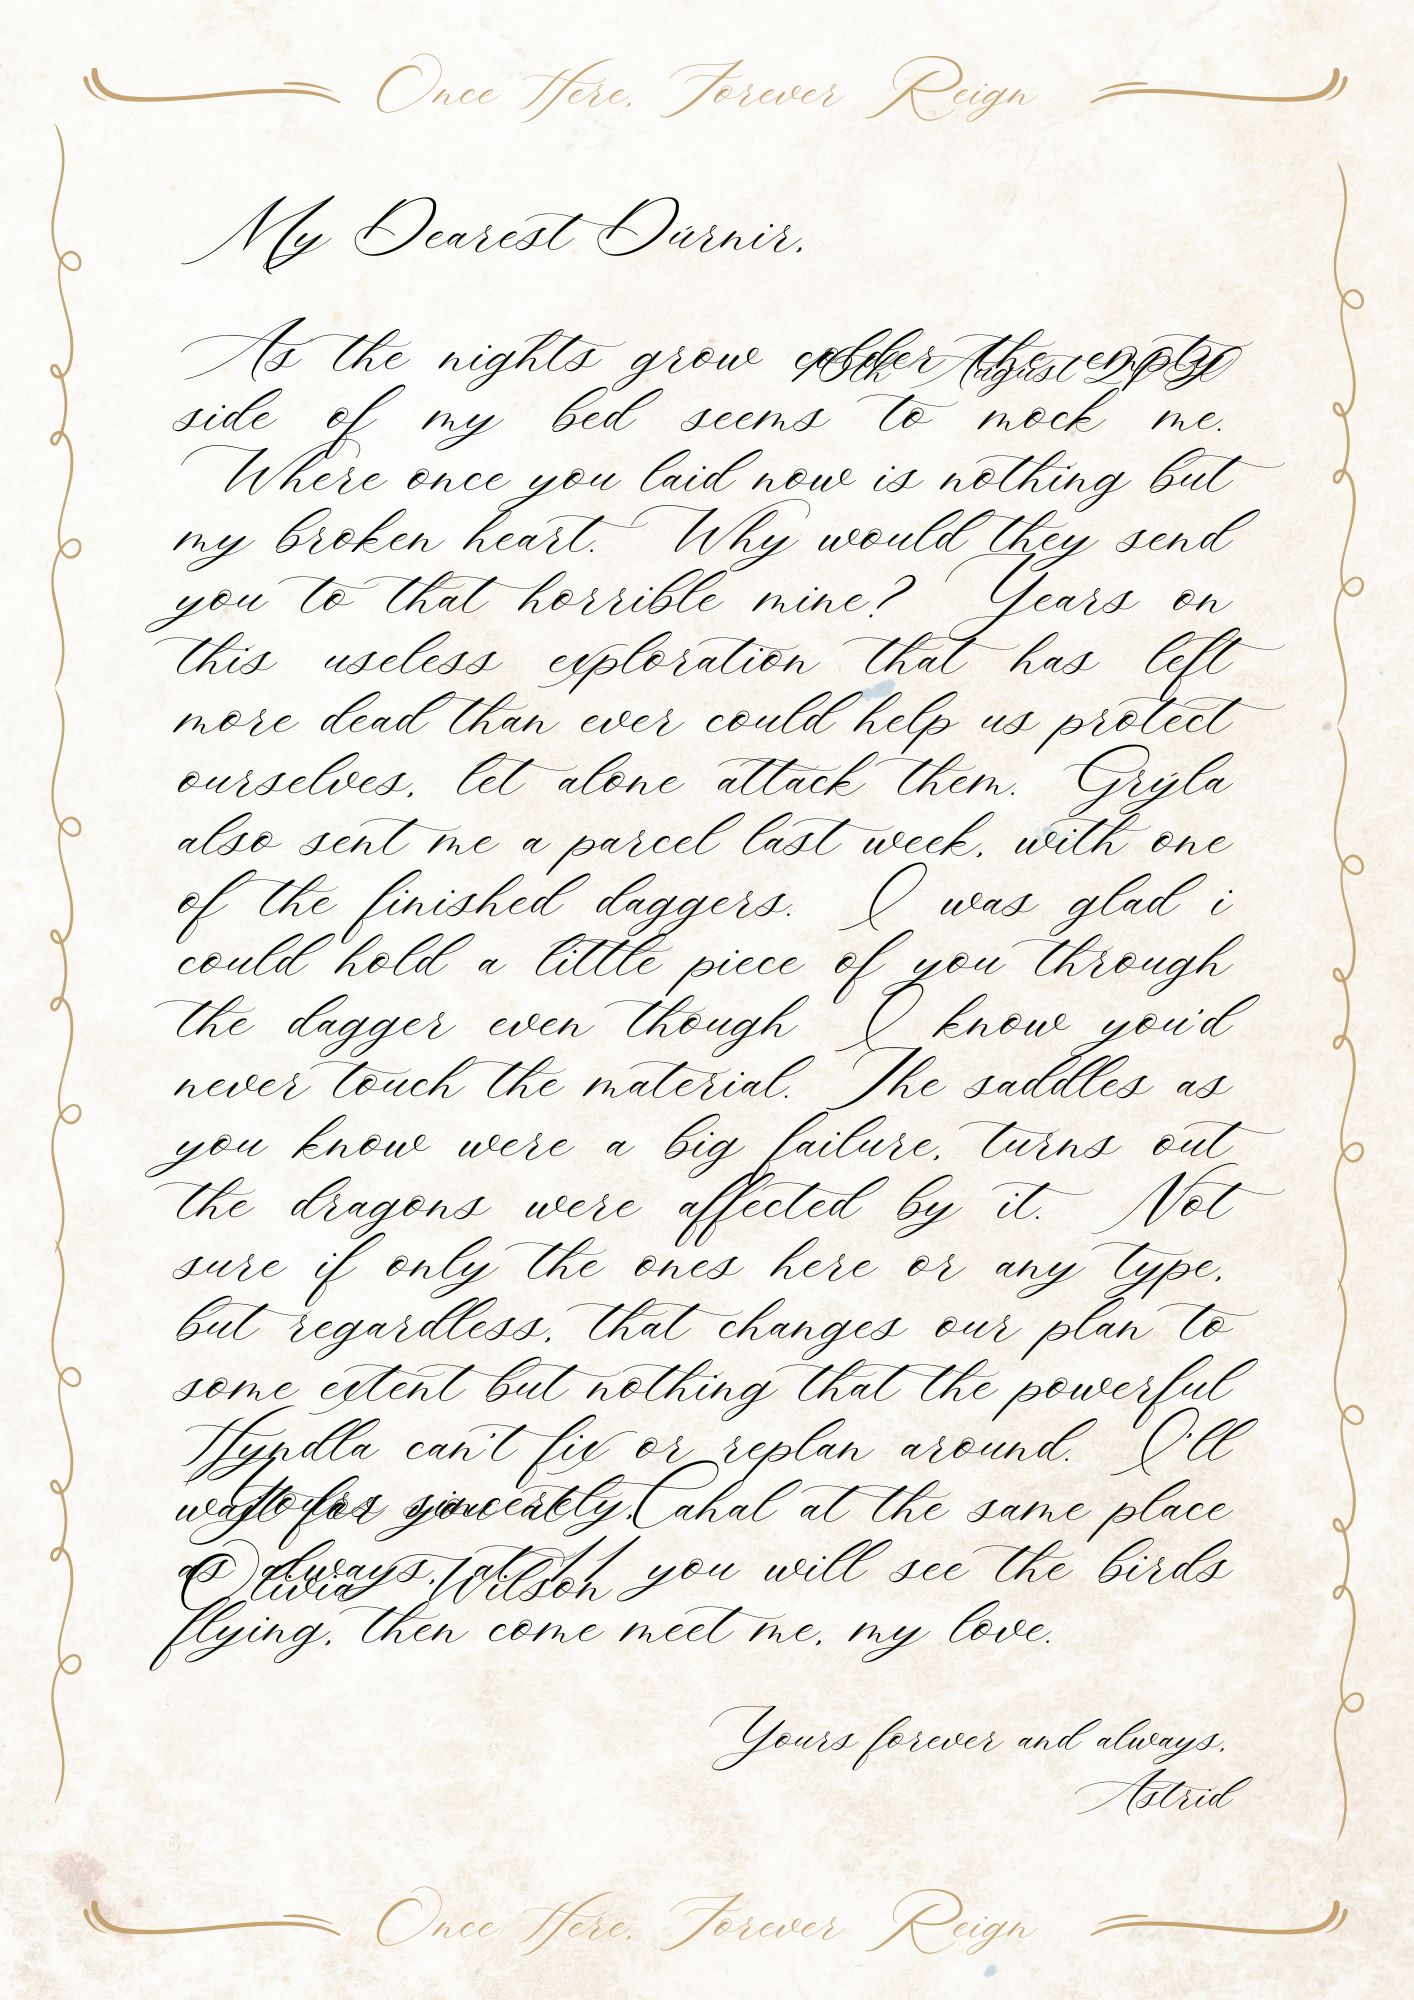 Once Here, Forever Reign
My Dearest Dúrnir,
As the nights grow colder the empty
15th August 2030
side of my bed seems to mock me.
Where once you laid now is nothing but
my broken heart. Why would they send
you to that horrible mine? Years on
this useless exploration that has left
more dead than ever could help us protect
ourselves, let alone attack them. Grýla
also sent me a parcel last week, with one
of the finished daggers. I was glad i
could hold a little piece of you through
the dagger even though I know you'd
never touch the material. The saddles as
you know were a big failure, turns out
the dragons were affected by it. Not
sure if only the ones here or any type,
but regardless, that changes our plan to
some extent but nothing that the powerful
Hyndla can't fix or replan around. I'll
wait for you at Cahal at the same place
Yours sincerely,
as always, at 11 you will see the birds
Olivia Wilson
flying, then come meet me, my love.
Yours forever and always,
Astrid
Once Here, Forever Reign